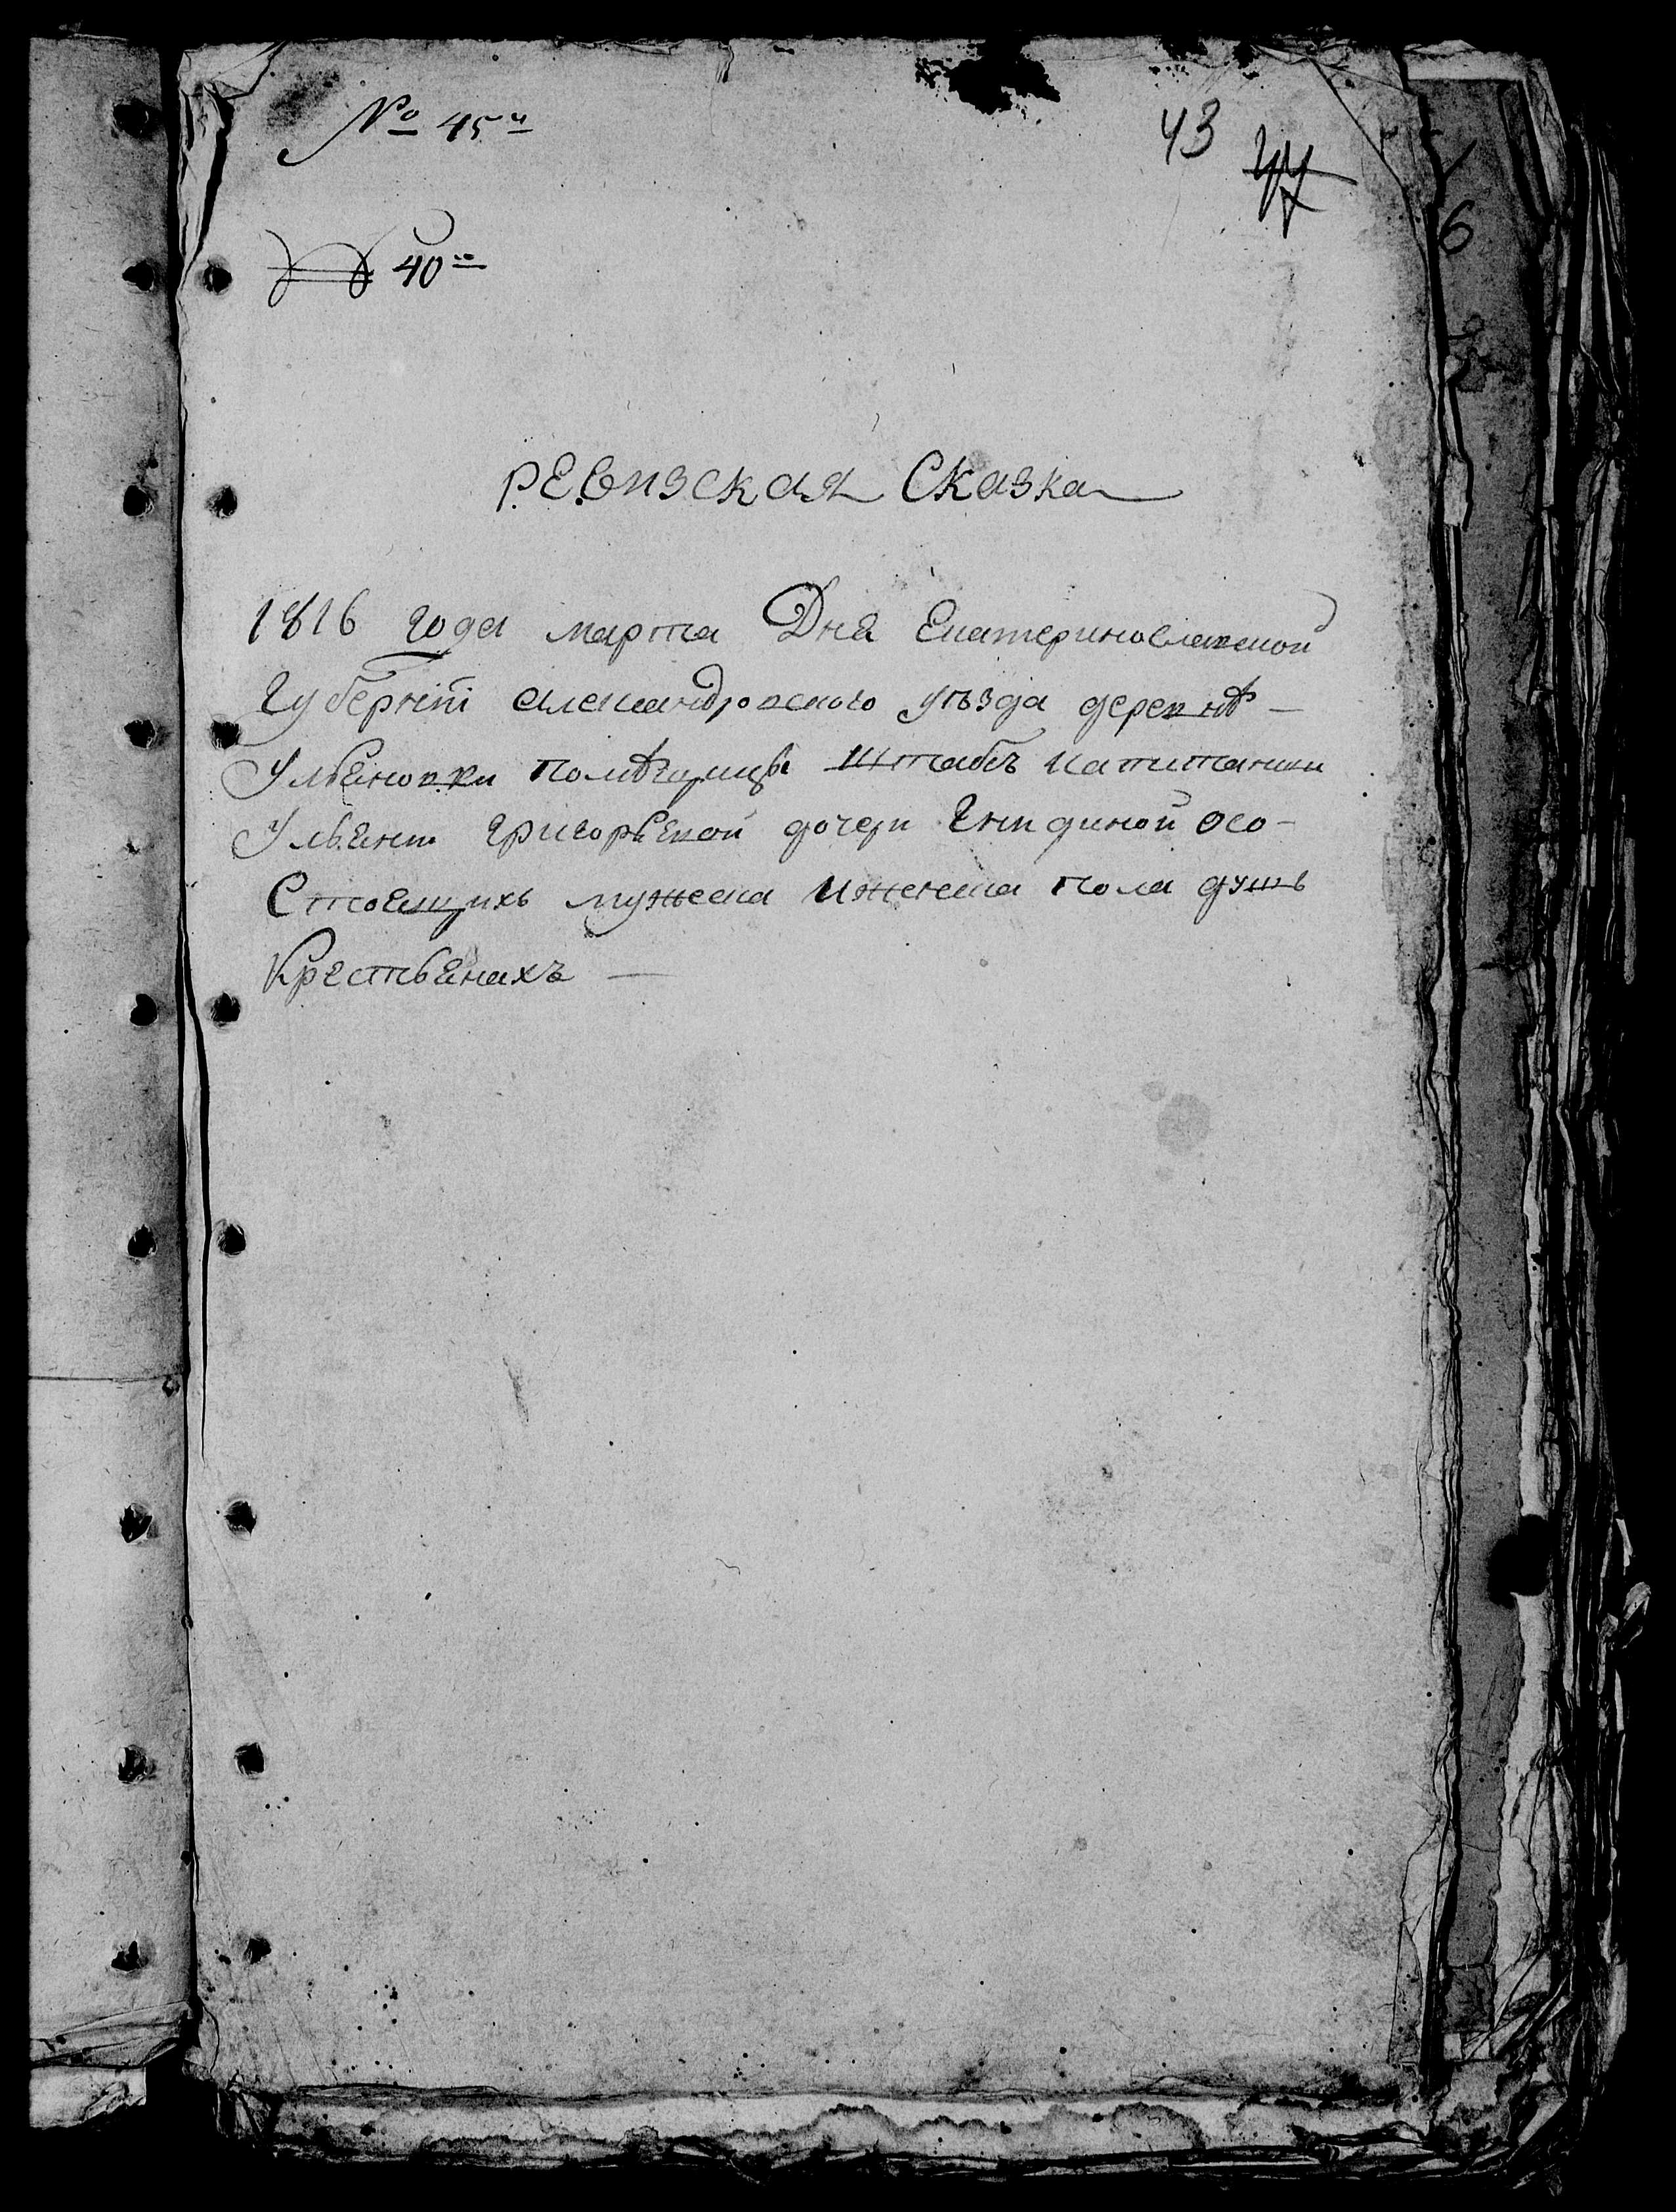 № 45й
43
40
РЕвизская Сказка
1816 года марта Дня Екатериновлавской
Губерніи Александровского уѣзда деревнѣ
Ульеновки Помѣщицы Штабъ капитанши
Ульени Григорьевой дочери Гнидиной осо-
Стоещихъ мужеска и женска пола душъ
Крестьенахъ